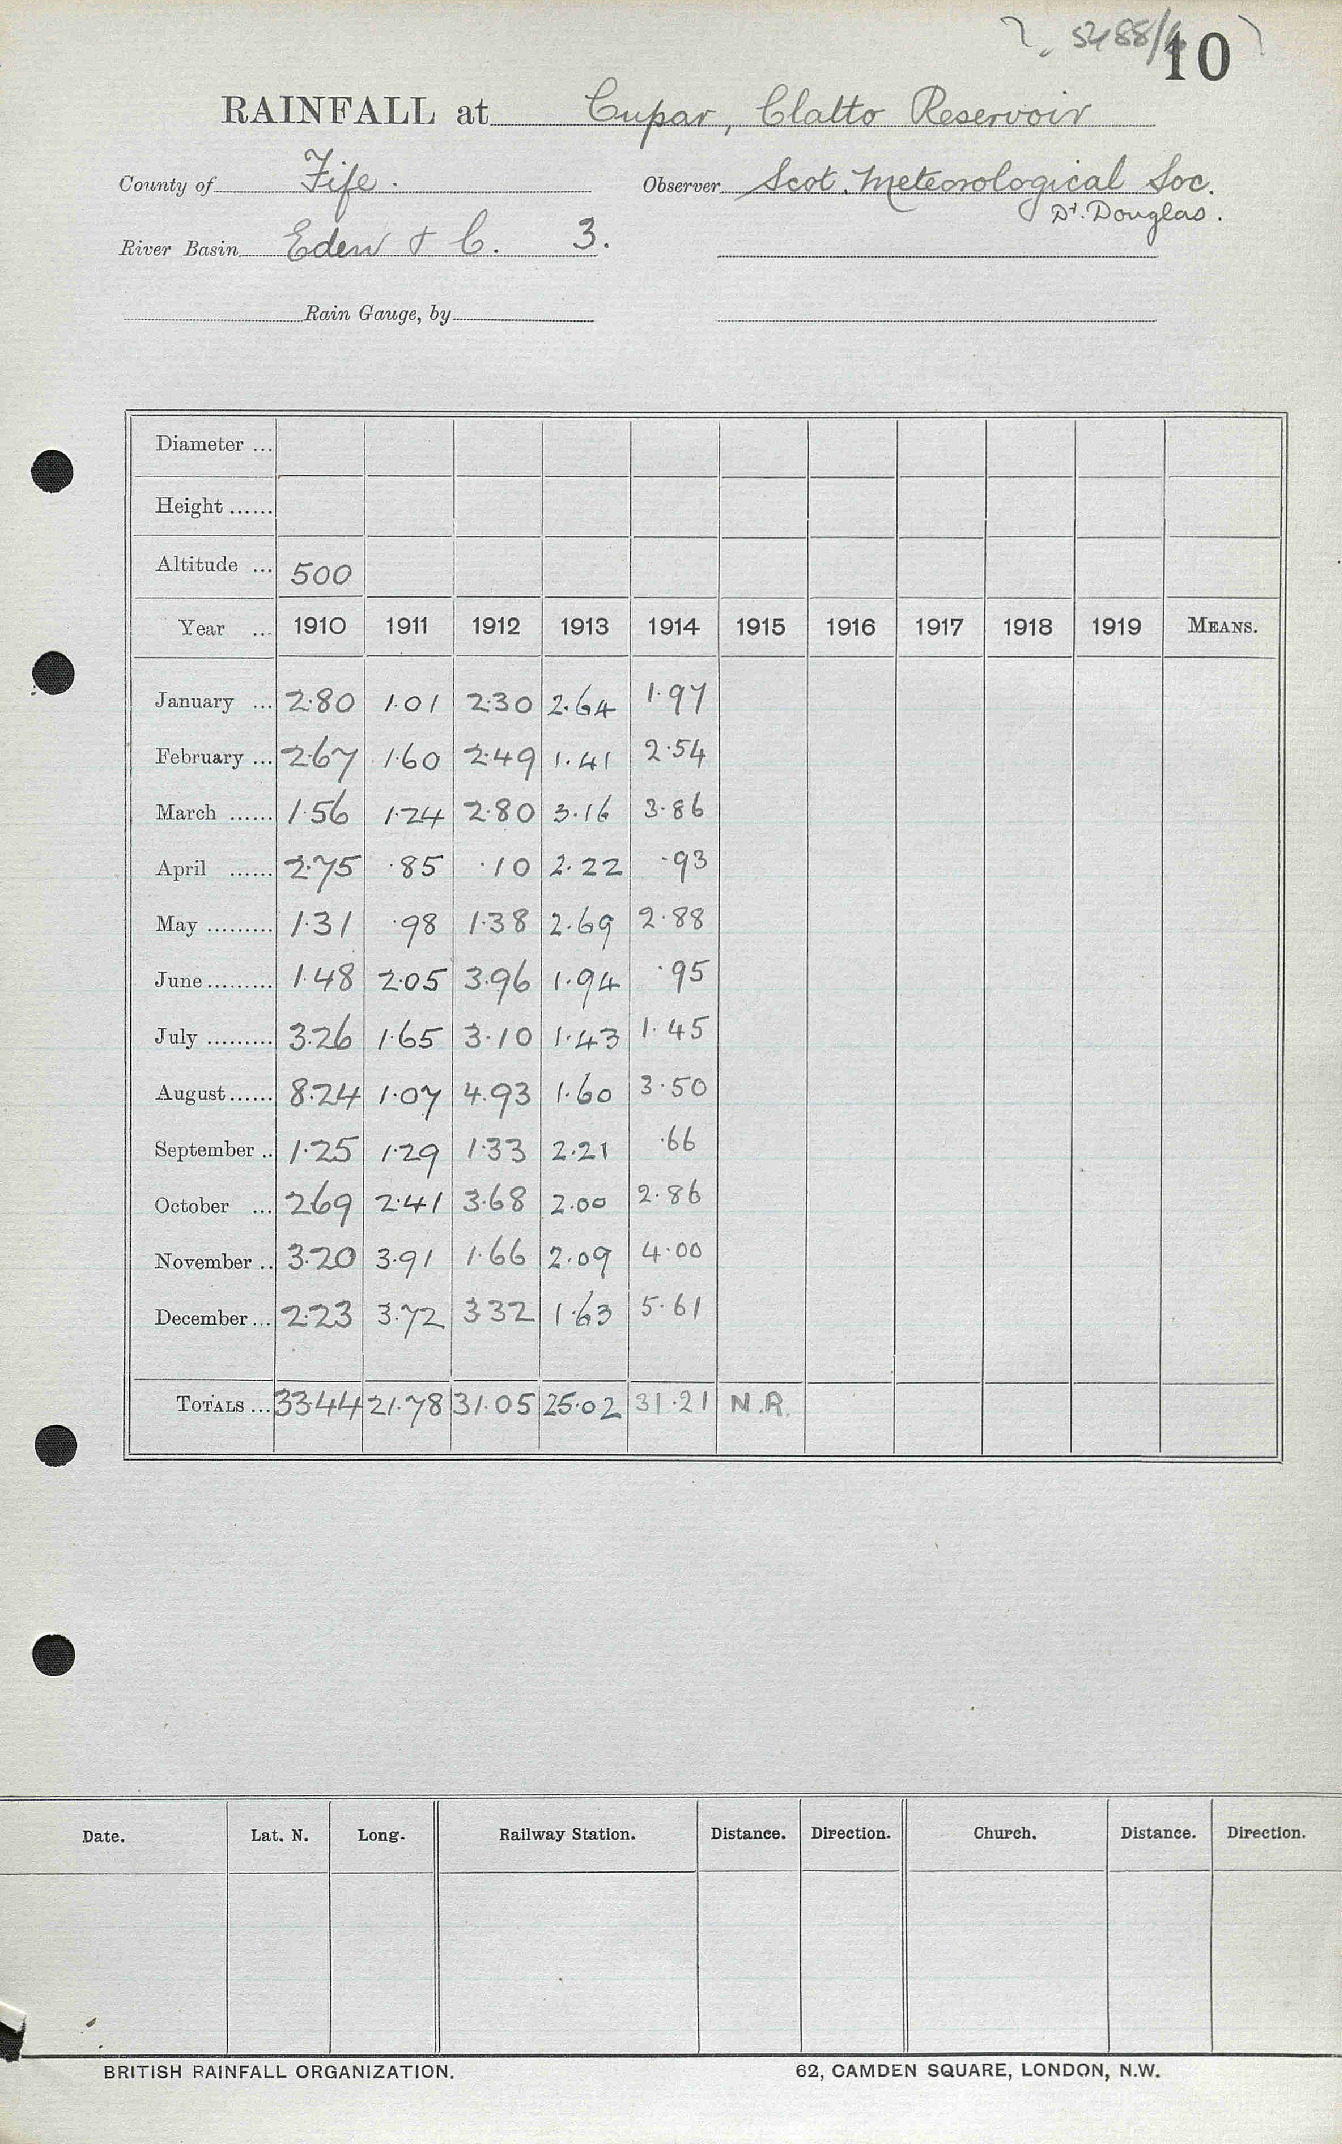 5488/
10
RAINFALL at Cupar, Clatto Reservoir
County of Fife. Observer Scot. Meteorological Soc.
Dr. Douglas.
River Basin Eden & C. 3.
Rain Gauge, by
Diameter ...
Height ......
Altitude ... 500
Year ... 1910 1911 1912 1913 1914 1915 1916 1917 1918 1919 MEANS.
January ... 2.80 1.01 2.30 2.64 1.97
February ... 2.67 1.60 2.49 1.41 2.54
March ...... 1.56 1.24 2.80 3.16 3.86
April ...... 2.75 .85 .10 2.22 .93
May ......... 1.31 .98 1.38 2.69 2.88
June ......... 1.48 2.05 3.96 1.94 .95
July ......... 3.26 1.65 3.10 1.43 1.45
August ...... 8.24 1.07 4.93 1.60 3.50
September .. 1.25 1.29 1.33 2.21 .66
October ... 2.69 2.41 3.68 2.00 2.86
November .. 3.20 3.91 1.66 2.09 4.00
December ... 2.23 3.72 3.32 1.63 5.61
TOTALS ... 33.44 21.78 31.05 25.02 31.21 N.R.
Date. Lat. N. Long. Railway Station. Distance. Direction. Church. Distance. Direction.
BRITISH RAINFALL ORGANIZATION. 62, CAMDEN SQUARE, LONDON, N.W.